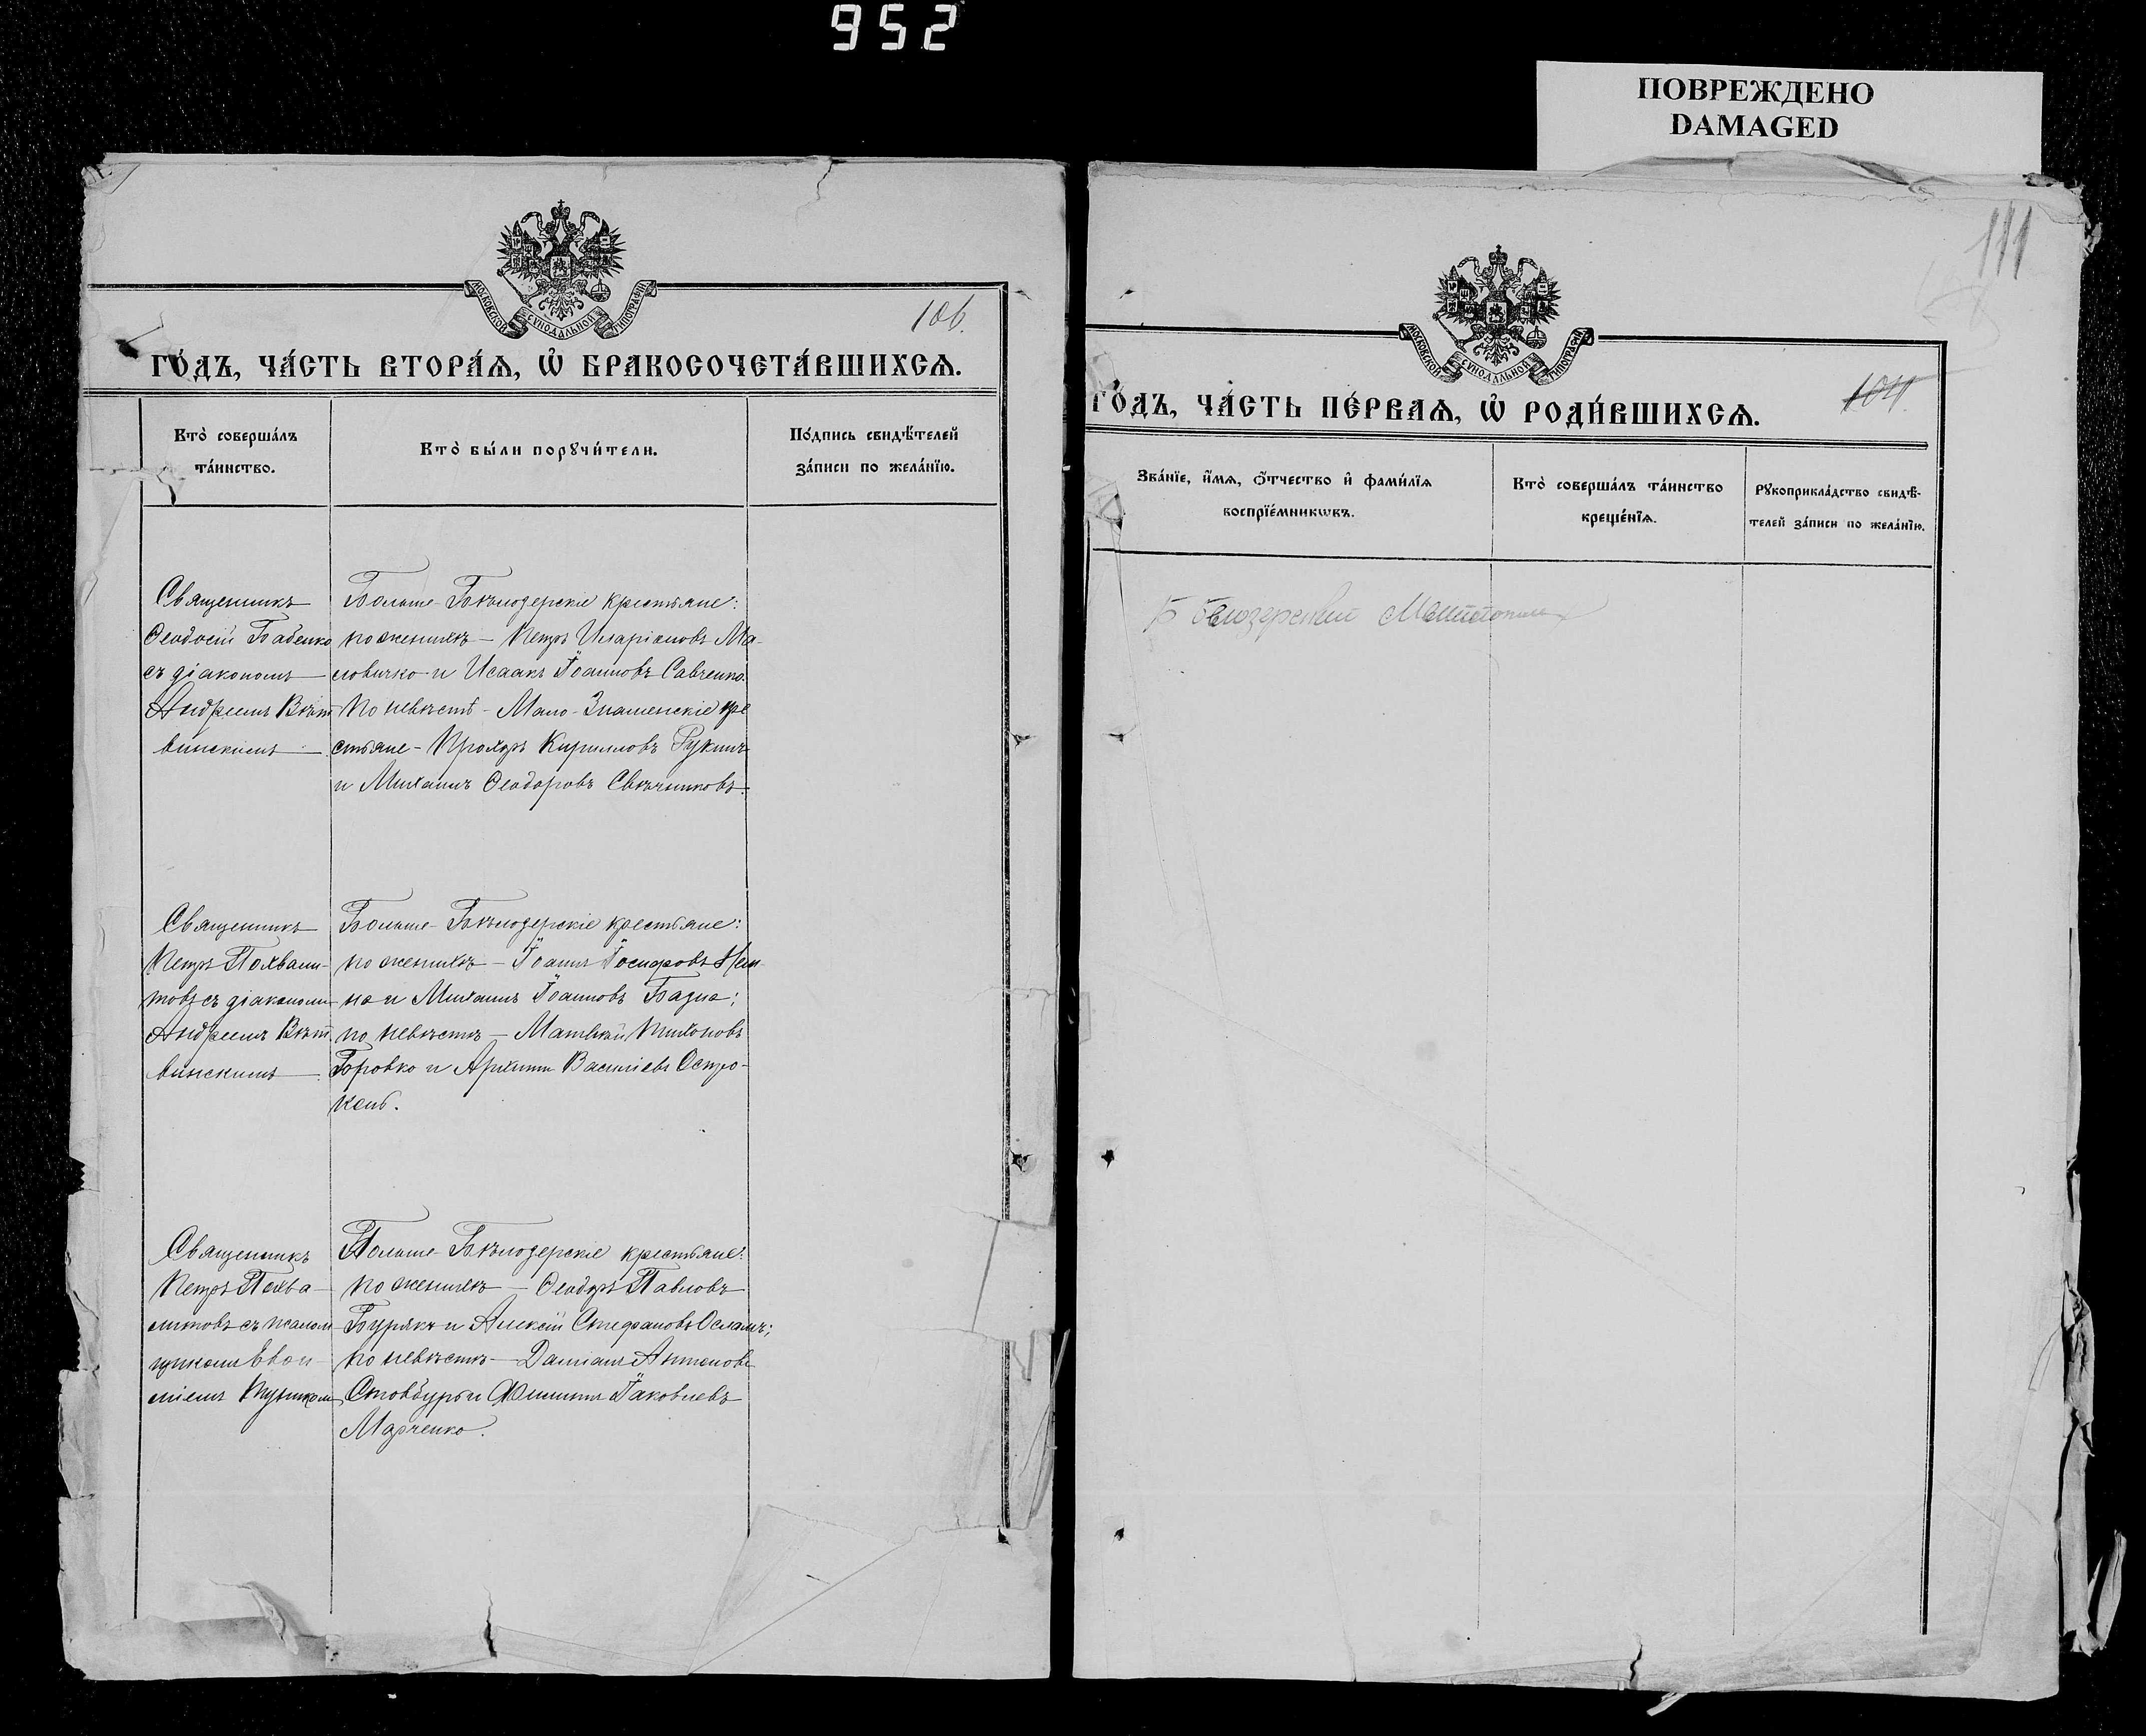 952
ПОВРЕЖДЕНО
DAMAGED
МОСКОВСКОЙ СУНОДАЛЬНОЙ ТИПОГРАФІИ
106.
ГО́ДЪ, ЧА́СТЬ ВТОРА́Ѧ, Ѽ БРАКОСОЧЕТА́ВШИХСѦ.
Кто̀ соверша́лъ
та́инство.
Кто̀ бы́ли порꙋчи́тели.
По́дпись свидѣ́телей
за́писи по жела́нїю.
Священникъ
Ѳеодосій Бабенко
съ діакономъ
Андреемъ Вѣт
винскимъ
Больше-Бѣлозерскіе крестьяне:
по женихѣ — Петръ Иларіоновъ Ма-
ловичко и Исаакъ Іоанновъ Савченко.
По невѣстѣ - Мало-Знаменскіе кре
стьяне - Прохоръ Кирилловъ Рукинъ
и Михаилъ Ѳеодоровъ Свѣчниковъ.
Священникъ
Петръ Похвали-
товъ съ діакономъ
Андреемъ Вѣт
винскимъ
Больше-Бѣлозерскіе крестьяне:
по женихѣ — Іоаннъ Іосифовъ
на и Михаилъ Іоанновъ Базна;
по невѣстѣ — Матвѣй Тихоновъ
Боровко и Архипъ Василіевъ Остро-
Священникъ
Петръ Похва-
литовъ съ псалом
щикомъ
Больше-Бѣлозерскіе крестьяне:
по женихѣ — Ѳеодоръ Павловъ
Бурякъ и Алексій Стефановъ Осламъ;
по невѣстѣ — Даміанъ Антоновъ
Стовбуръ и Филиппъ Іаковлевъ
Марченко.
111
МОСКОВСКОЙ СУНОДАЛЬНОЙ ТИПОГРАФІИ
104.
ГО́ДЪ, ЧА́СТЬ ПЕ́РВАѦ, Ѽ РОДИ́ВШИХСѦ.
Зва́нїе, и҆́мѧ, ѻ҆́тчество и҆ фами́лїѧ
воспрїе́мникѡвъ.
Кто̀ соверша́лъ та́инство
креще́нїѧ.
Рꙋкоприкла́дство свидѣ́-
телей за́писи по жела́нїю.
Б белозерский